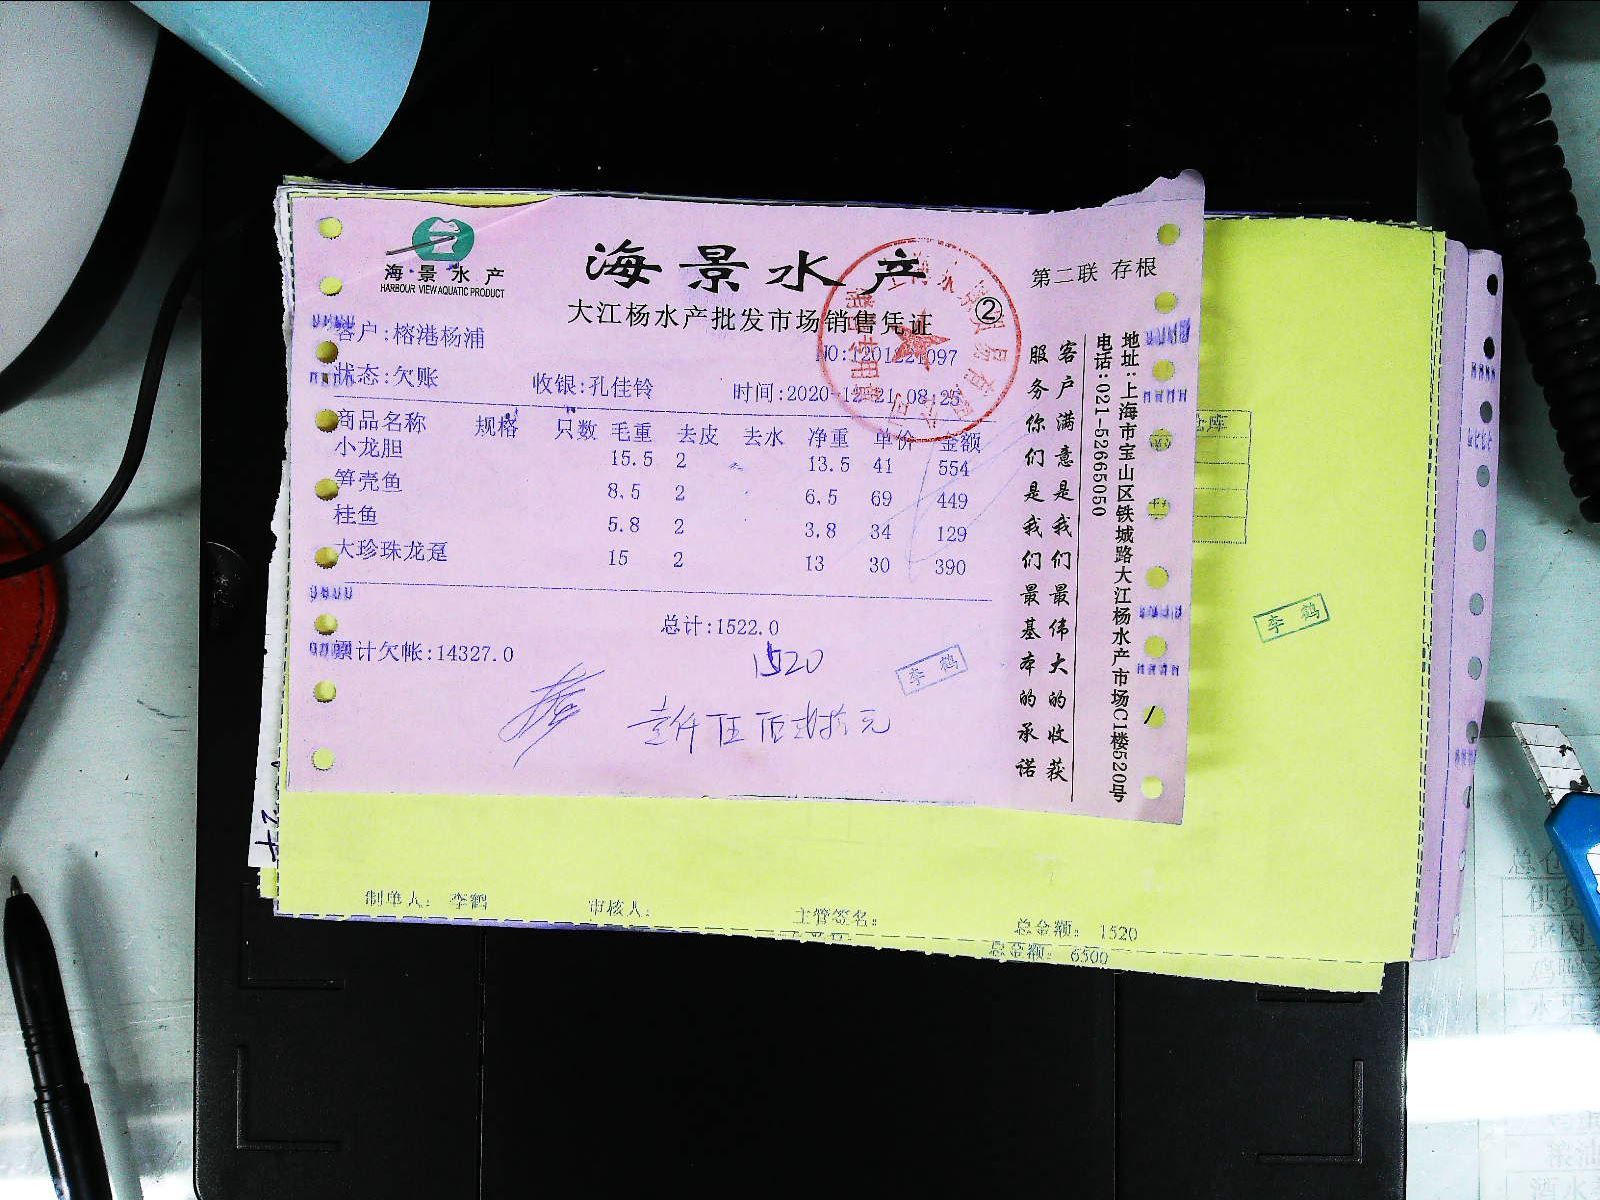 海景水产
HARBOUR VIEW AQUATIC PRODUCT
海景水产
第二联 存根
②
大江杨水产批发市场销售凭证
客户:榕港杨浦
NO:1201221097
状态:欠账 收银:孔佳铃 时间:2020-12-21 08:25
商品名称 规格 只数 毛重 去皮 去水 净重 单价 金额
小龙胆 15.5 2 13.5 41 554
笋壳鱼 8.5 2 6.5 69 449
桂鱼 5.8 2 3.8 34 129
大珍珠龙趸 15 2 13 30 390
总计:1522.0
累计欠帐:14327.0
1520
李鹤
壹仟伍佰贰拾元
客户满意是我们最伟大的收获
服务你们是我们最基本的承诺
地址:上海市宝山区铁城路大江杨水产市场C1楼520号
电话:021-52665050
仓库
李鹤
制单人: 李鹤 审核人: 主管签名: 总金额: 1520
总金额: 6500